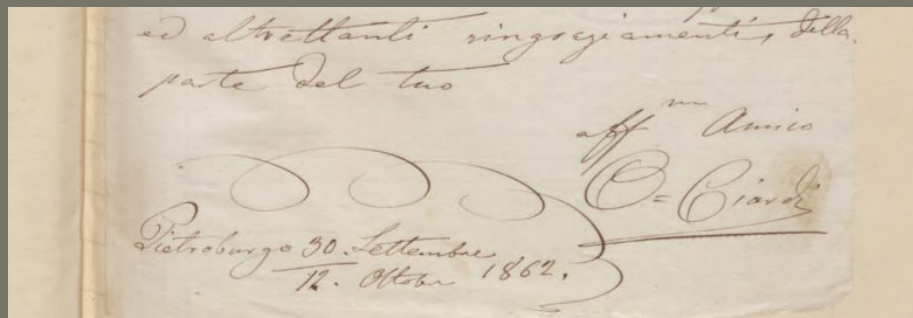 ed altrettanti ringraziamenti, dalla
parte del tuo
aff.mo Amico
C= Ciardi
Pietroburgo 30. Settembre
12. Ottobre 1862.